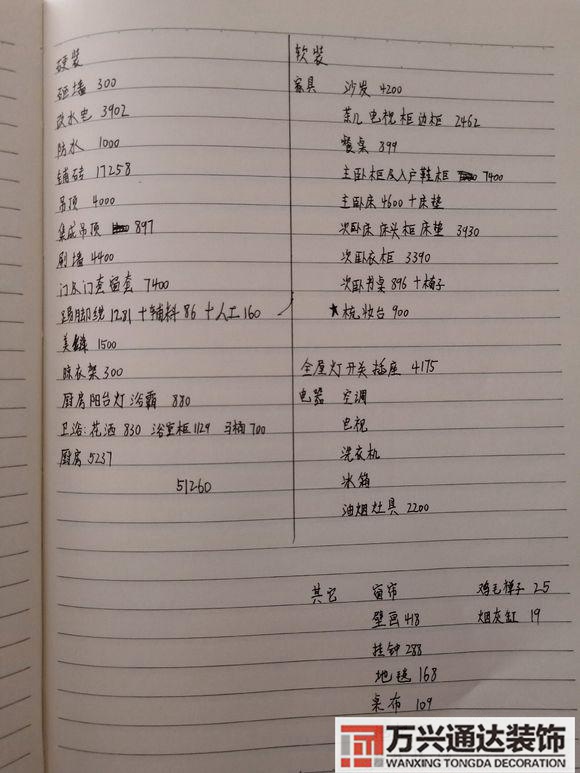 硬装
砸墙 300
改水电 3902
防水 1000
铺砖 17258
吊顶 4000
集成吊顶 897
刷墙 4400
门及门套窗套 7400
踢脚线 1281+辅料86+人工160
美缝 1500
晾衣架 300
厨房阳台灯 浴霸 880
卫浴:花洒 830 浴室柜 1129 马桶 700
厨房 5237
51260
软装
家具 沙发 4200
茶几 电视柜 边柜 2462
餐桌 899
主卧柜及入户鞋柜 7400
主卧床 4600+床垫
次卧床 床头柜 床垫 3930
次卧衣柜 3390
次卧书桌 896+椅子
*梳妆台 900
全屋灯开关插座 4175
电器 空调
电视
洗衣机
冰箱
油烟灶具 2200
其它 窗帘 鸡毛掸子 25
壁画 418 烟灰缸 19
挂钟 288
地毯 168
桌布 109
万兴通达装饰
WANXING TONGDA DECORATION